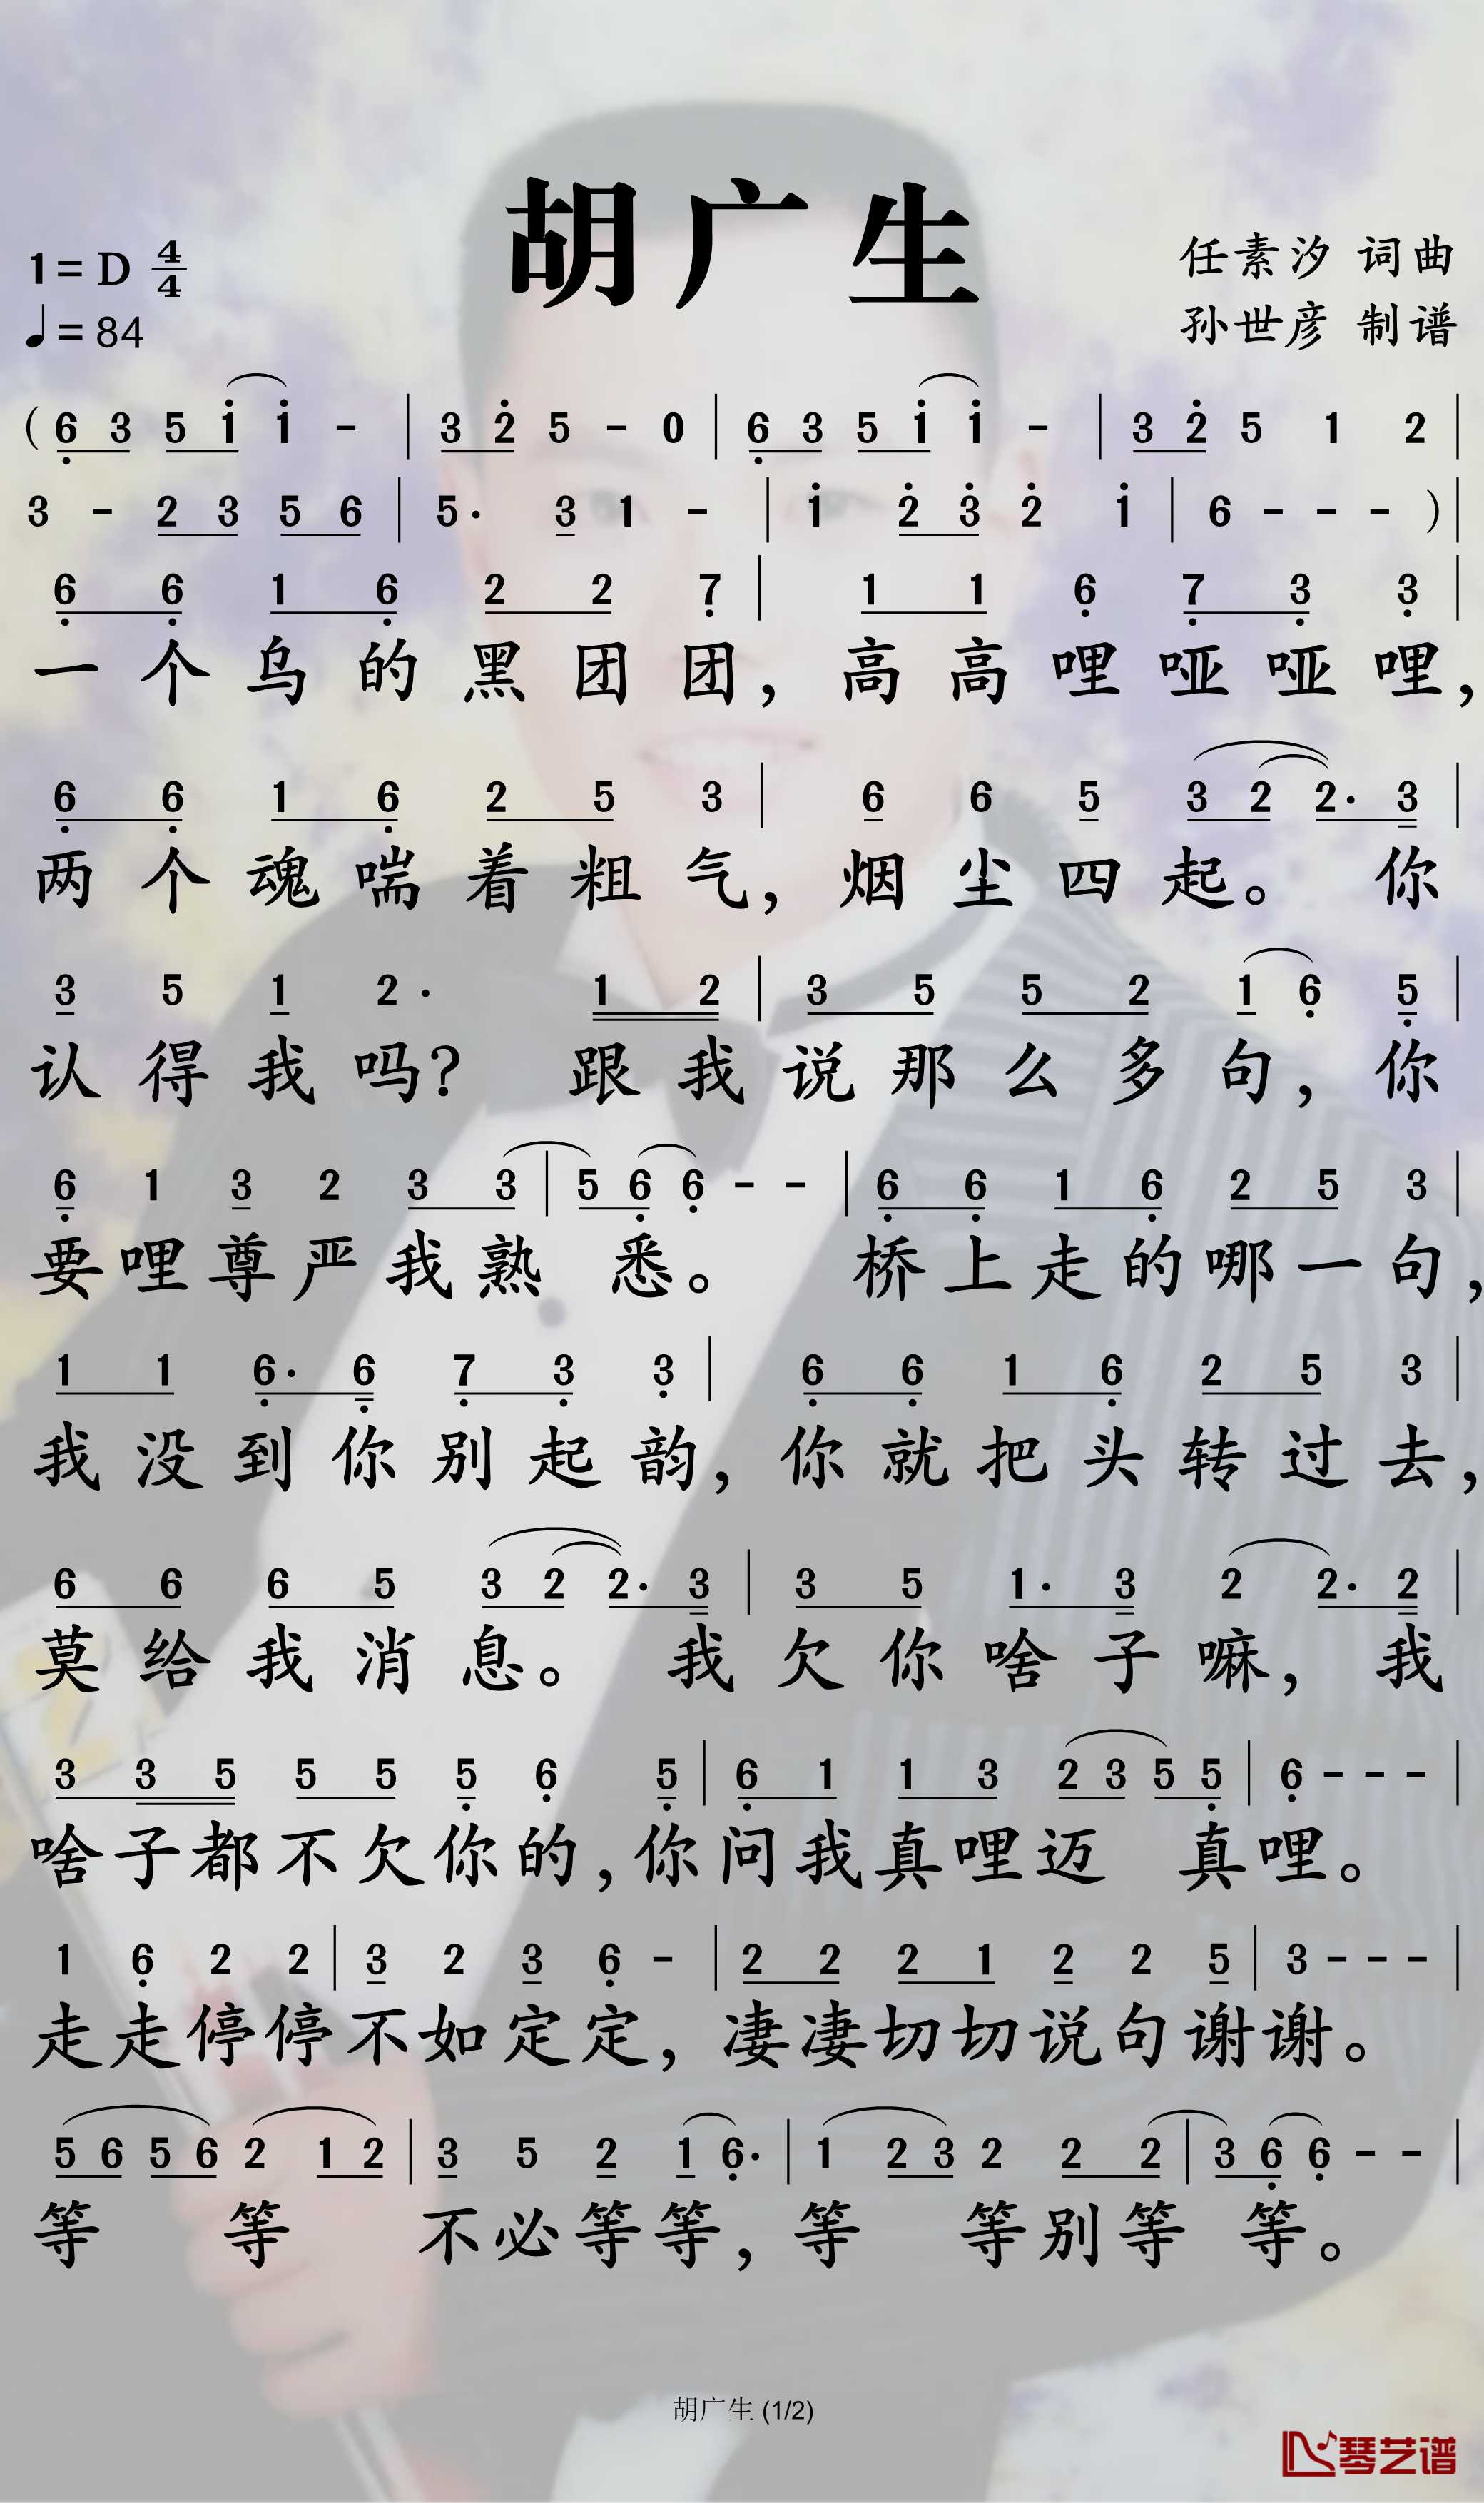 胡广生
1=D 4/4
♩=84
任素汐 词曲
孙世彦 制谱
( 6 3 5 1 1 - | 3 2 5 - 0 | 6 3 5 1 1 - | 3 2 5 1 2 |
3 - 2 3 5 6 | 5· 3 1 - | 1 2 3 2 1 | 6 - - - ) |
6 6 1 6 2 2 7 | 1 1 6 7 3 3 |
一个乌的黑团团，高高哩哑哑哩，
6 6 1 6 2 5 3 | 6 6 5 3 2 2· 3 |
两个魂喘着粗气，烟尘四起。 你
3 5 1 2· 1 2 | 3 5 5 2 1 6 5 |
认得我吗？ 跟我说那么多句，你
6 1 3 2 3 3 | 5 6 6 - - | 6 6 1 6 2 5 3 |
要哩尊严我熟 悉。 桥上走的哪一句，
1 1 6· 6 7 3 3 | 6 6 1 6 2 5 3 |
我没到你别起韵，你就把头转过去，
6 6 6 5 3 2 2· 3 | 3 5 1· 3 2 2· 2 |
莫给我消息。 我欠你啥子嘛，我
3 3 5 5 5 5 6 5 | 6 1 1 3 2 3 5 5 | 6 - - - |
啥子都不欠你的，你问我真哩迈 真哩。
1 6 2 2 | 3 2 3 6 - | 2 2 2 1 2 2 5 | 3 - - - |
走走停停不如定定，凄凄切切说句谢谢。
5 6 5 6 2 1 2 | 3 5 2 1 6· | 1 2 3 2 2 2 | 3 6 6 - - |
等 等 不必等等，等 等别等 等。
胡广生 (1/2)
琴艺谱